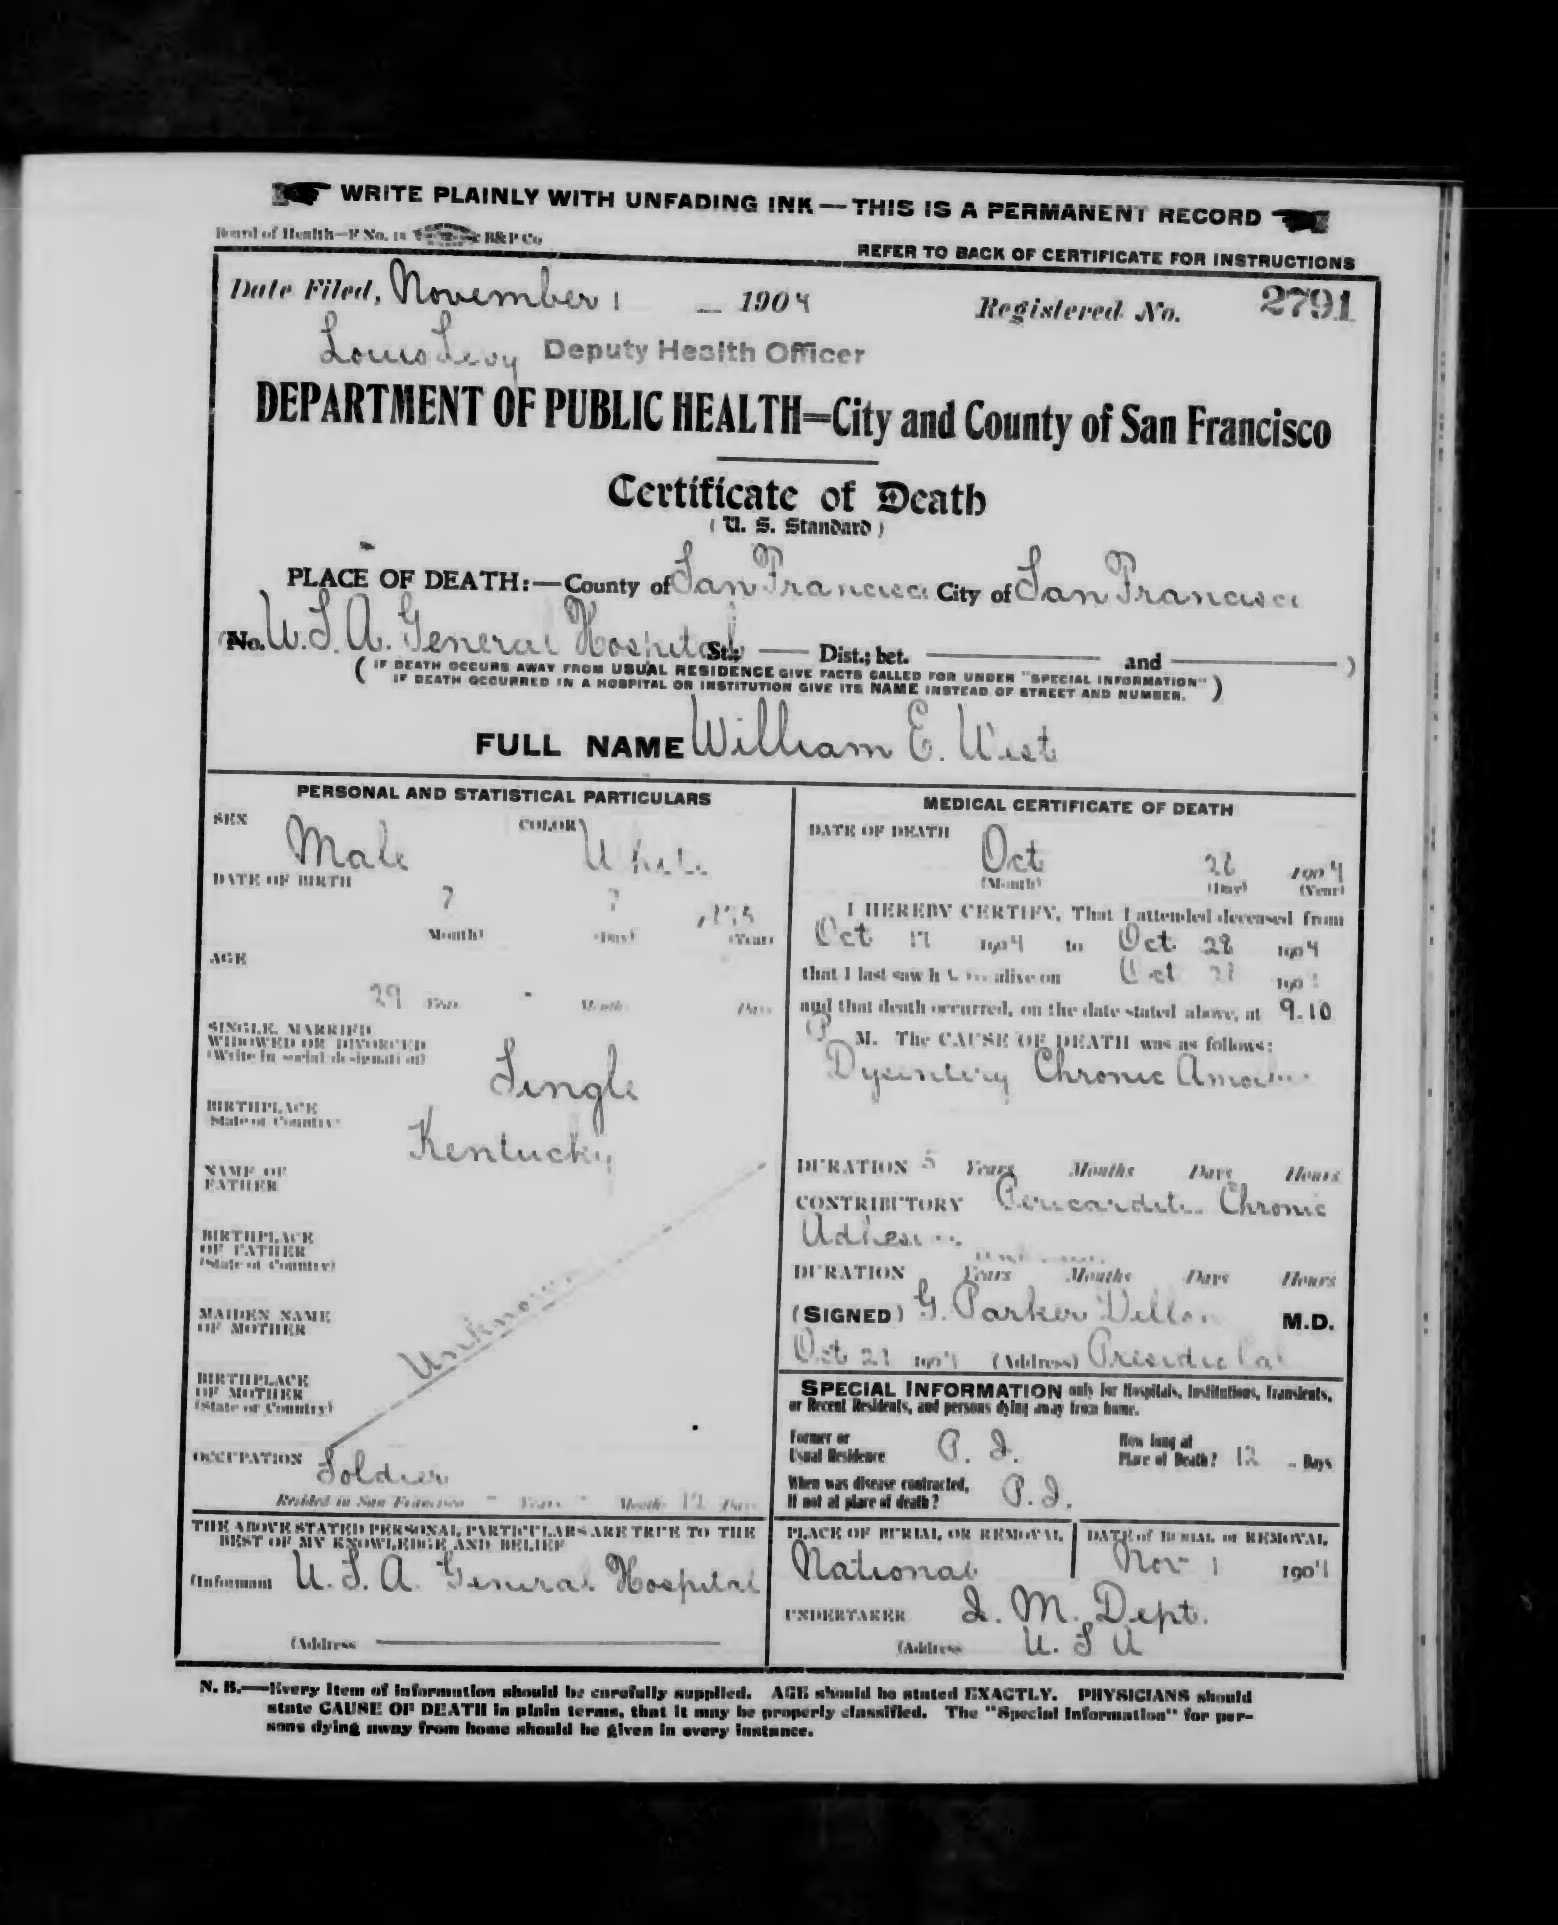 WRITE PLAINLY WITH UNFADING INK — THIS IS A PERMANENT RECORD
Board of Health—F No. B&P Co
REFER TO BACK OF CERTIFICATE FOR INSTRUCTIONS
Date Filed, November 1 1904 Registered No. 2791
Louis Levy Deputy Health Officer
DEPARTMENT OF PUBLIC HEALTH=City and County of San Francisco
Certificate of Death
(U. S. Standard)
PLACE OF DEATH:—County of San Francisco City of San Francisco
(No. U.S.A. General Hospital St.; — Dist.; bet. — and — )
( IF DEATH OCCURS AWAY FROM USUAL RESIDENCE GIVE FACTS CALLED FOR UNDER "SPECIAL INFORMATION" )
IF DEATH OCCURRED IN A HOSPITAL OR INSTITUTION GIVE ITS NAME INSTEAD OF STREET AND NUMBER.
FULL NAME William E. West
PERSONAL AND STATISTICAL PARTICULARS
SEX Male COLOR White
DATE OF BIRTH ? ?
(Month) (Day) (Year)
AGE
29 Years Months Days
SINGLE, MARRIED
WIDOWED OR DIVORCED
(Write in social designation)
Single
BIRTHPLACE
(State or Country)
Kentucky
NAME OF
FATHER
BIRTHPLACE
OF FATHER
(State or Country)
MAIDEN NAME
OF MOTHER
Unknown
BIRTHPLACE
OF MOTHER
(State or Country)
OCCUPATION Soldier
Resided in San Francisco - Years - Months 12 Days
THE ABOVE STATED PERSONAL PARTICULARS ARE TRUE TO THE
BEST OF MY KNOWLEDGE AND BELIEF
(Informant U. S. A. General Hospital
(Address
MEDICAL CERTIFICATE OF DEATH
DATE OF DEATH
Oct 28 1904
(Month) (Day) (Year)
I HEREBY CERTIFY, That I attended deceased from
Oct 17 1904 to Oct 28 1904
that I last saw him alive on Oct 28 1904
and that death occurred, on the date stated above, at 9.10
P M. The CAUSE OF DEATH was as follows:
Dysentery Chronic Amoebic
DURATION 5 Years Months Days Hours
CONTRIBUTORY Pericarditis Chronic
Adhesive
Unknown
DURATION Years Months Days Hours
(SIGNED) G. Parker Dillon M.D.
Oct 29 1904 (Address) Presidio Cal
SPECIAL INFORMATION only for Hospitals, Institutions, Transients,
or Recent Residents, and persons dying away from home.
Former or
Usual Residence P. I.
How long at
Place of Death? 12 Days
When was disease contracted,
If not at place of death? P. I.
PLACE OF BURIAL OR REMOVAL
National
DATE of BURIAL or REMOVAL
Nov 1 1904
UNDERTAKER Q. M. Dept.
(Address U. S A
N. B.—Every item of information should be carefully supplied. AGE should be stated EXACTLY. PHYSICIANS should
state CAUSE OF DEATH in plain terms, that it may be properly classified. The "Special Information" for per-
sons dying away from home should be given in every instance.